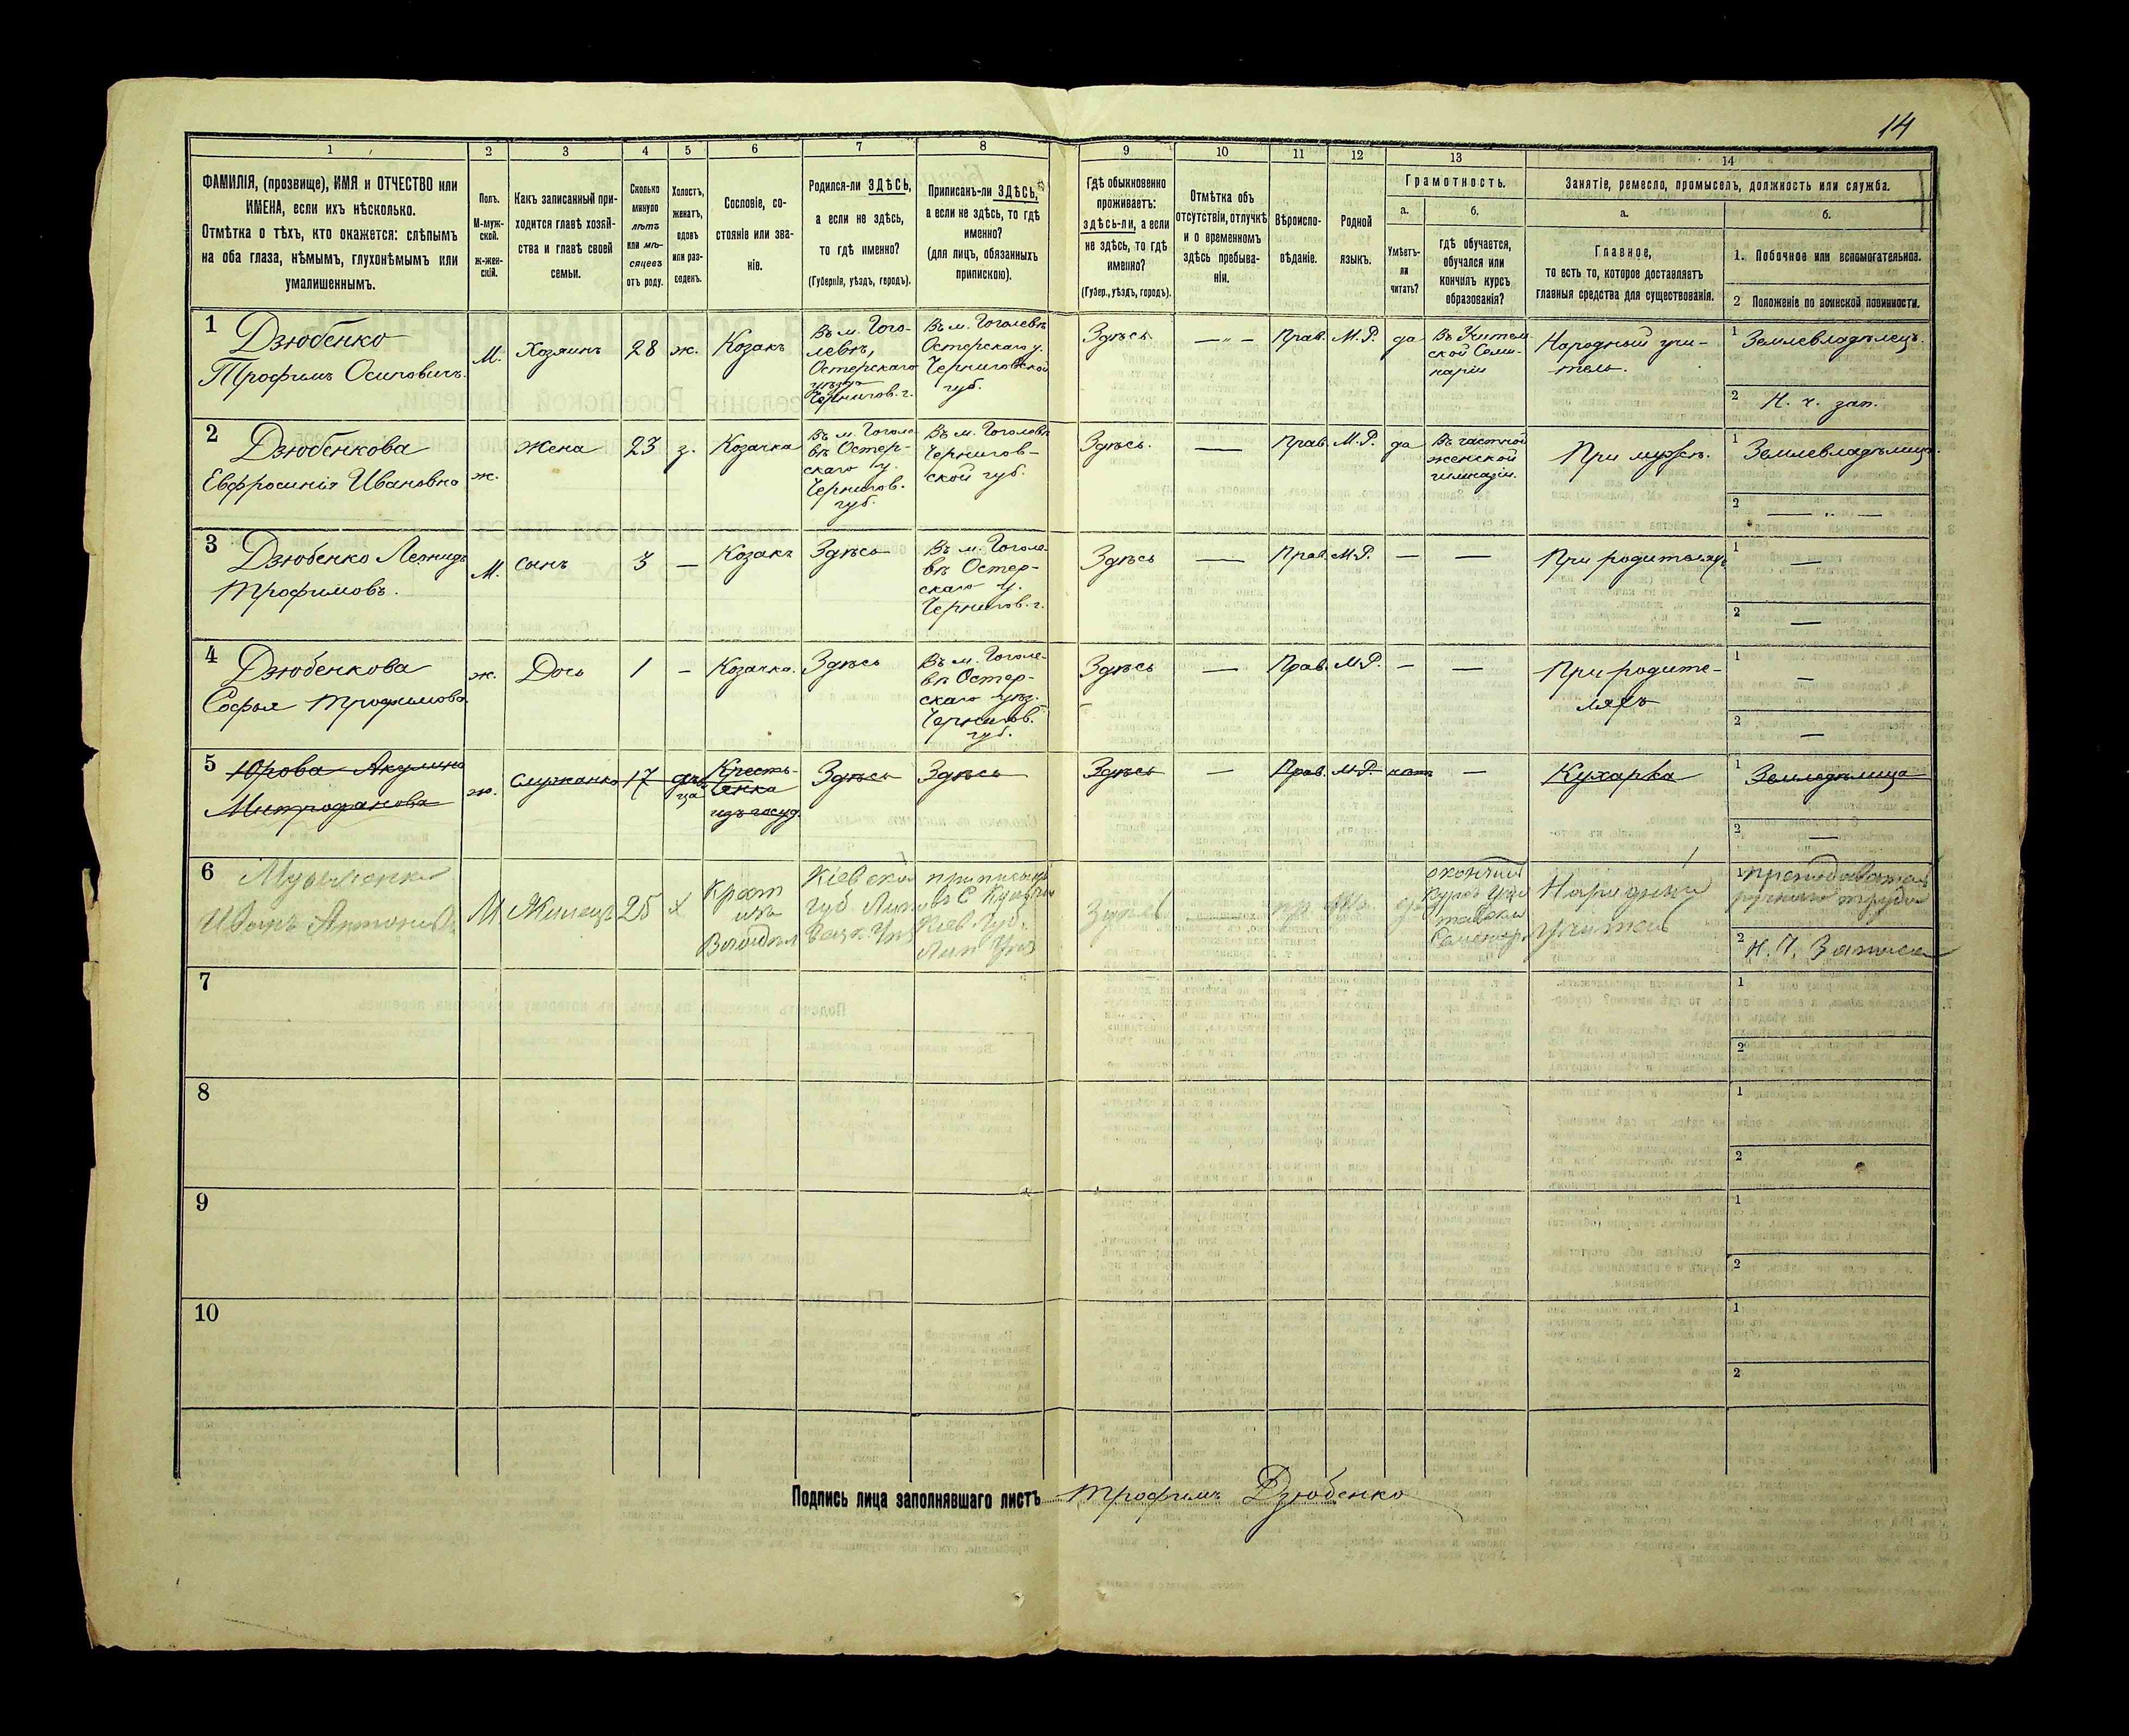 14
1 2 3 4 5 6 7 8 9 10 11 12 13 14
ФАМИЛІЯ, (прозвище), ИМЯ и ОТЧЕСТВО или
ИМЕНА, если ихъ нѣсколько.
Отмѣтка о тѣхъ, кто окажется: слѣпымъ
на оба глаза, нѣмымъ, глухонѣмымъ или
умалишеннымъ.
Полъ.
М-муж-
ской.
ж-жен-
скій.
Какъ записанный при-
ходится главѣ хозяй-
ства и главѣ своей
семьи.
Сколько
минуло
лѣтъ
или мѣ-
сяцевъ
отъ роду.
Холостъ,
женатъ,
вдовъ
или раз-
веденъ.
Сословіе, со-
стояніе или зва-
ніе.
Родился-ли ЗДѢСЬ,
а если не здѣсь,
то гдѣ именно?
(Губернія, уѣздъ, городъ).
Приписанъ-ли ЗДѢСЬ,
а если не здѣсь, то гдѣ
именно?
(для лицъ, обязанныхъ
припискою).
Гдѣ обыкновенно
проживаетъ:
здѣсь-ли, а если
не здѣсь, то гдѣ
именно?
(Губер., уѣздъ, городъ).
Отмѣтка объ
отсутствіи, отлучкѣ
и о временномъ
здѣсь пребыва-
ніи.
Вѣроиспо-
вѣданіе.
Родной
языкъ.
Грамотность.
а.
Умѣетъ-
ли
читать?
б.
гдѣ обучается,
обучался или
кончилъ курсъ
образованія?
Занятіе, ремесло, промыселъ, должность или служба.
а.
Главное,
то есть то, которое доставляетъ
главныя средства для существованія.
б.
1. Побочное или вспомогательное.
2 Положеніе по воинской повинности.
1
Дзюбенко
Трофимъ Осиповичъ.
М.
Хозяинъ
28
ж.
Козакъ
Въ м. Гого-
левѣ,
Остерскаго
уѣзда
Чернигов. г.
Въ м. Гоголевѣ
Остерскаго у.
Черниговской
губ.
Здѣсь
— „ —
Прав.
М.Р.
да
Въ Учител
ской Семи-
наріи
Народный учи-
тель.
1 Землевладѣлецъ.
2 Н. ч. зап.
2
Дзюбенкова
Евфросинія Ивановна
ж.
Жена
23
з.
Козачка
Въ м. Гоголе-
вѣ Остер-
скаго у.
Чернигов.
губ.
Въ м. Гоголевѣ
Чернигов-
ской губ.
Здѣсь.
—
Прав.
М.Р.
да
Въ частной
женской
гимназіи.
При мужѣ.
1 Землевладѣлица.
2 — „ —
3
Дзюбенко Леонидъ
Трофимовъ.
М.
Сынъ
3
—
Козакъ
Здѣсь
Въ м. Гоголе-
вѣ Остер-
скаго у.
Чернигов. г.
Здѣсь
—
Прав.
М.Р.
—
—
При родителяхъ
1 —
2 —
4
Дзюбенкова
Софья Трофимова.
ж.
Дочь
1
—
Козачка.
Здѣсь
Въ м. Гоголе-
вѣ Остер-
скаго уѣз.
Чернигов.
губ.
Здѣсь
—
Прав.
М.Р.
—
—
При родите-
ляхъ
1 —
2 —
5
Юрова Акулина
Митрофанова
ж.
Служанка
17
дѣви
ца
Кресть-
янка
изъ госуд.
Здѣсь
Здѣсь
Здѣсь
—
Прав.
М.Р.
нѣтъ
—
Кухарка
1 Земледѣлица
2 —
6
Иванъ
М
Жилецъ
25
х
Крест
изъ
Кіевской
губ.
Кіев. Губ.
Здѣсь
пр
окончилъ
курсъ
Народный
учитель
1 преподаватель
2 Н. Ч. Запаса
7
1
2
8
1
2
9
1
2
10
1
2
Подпись лица заполнявшаго листъ Трофимъ Дзюбенко